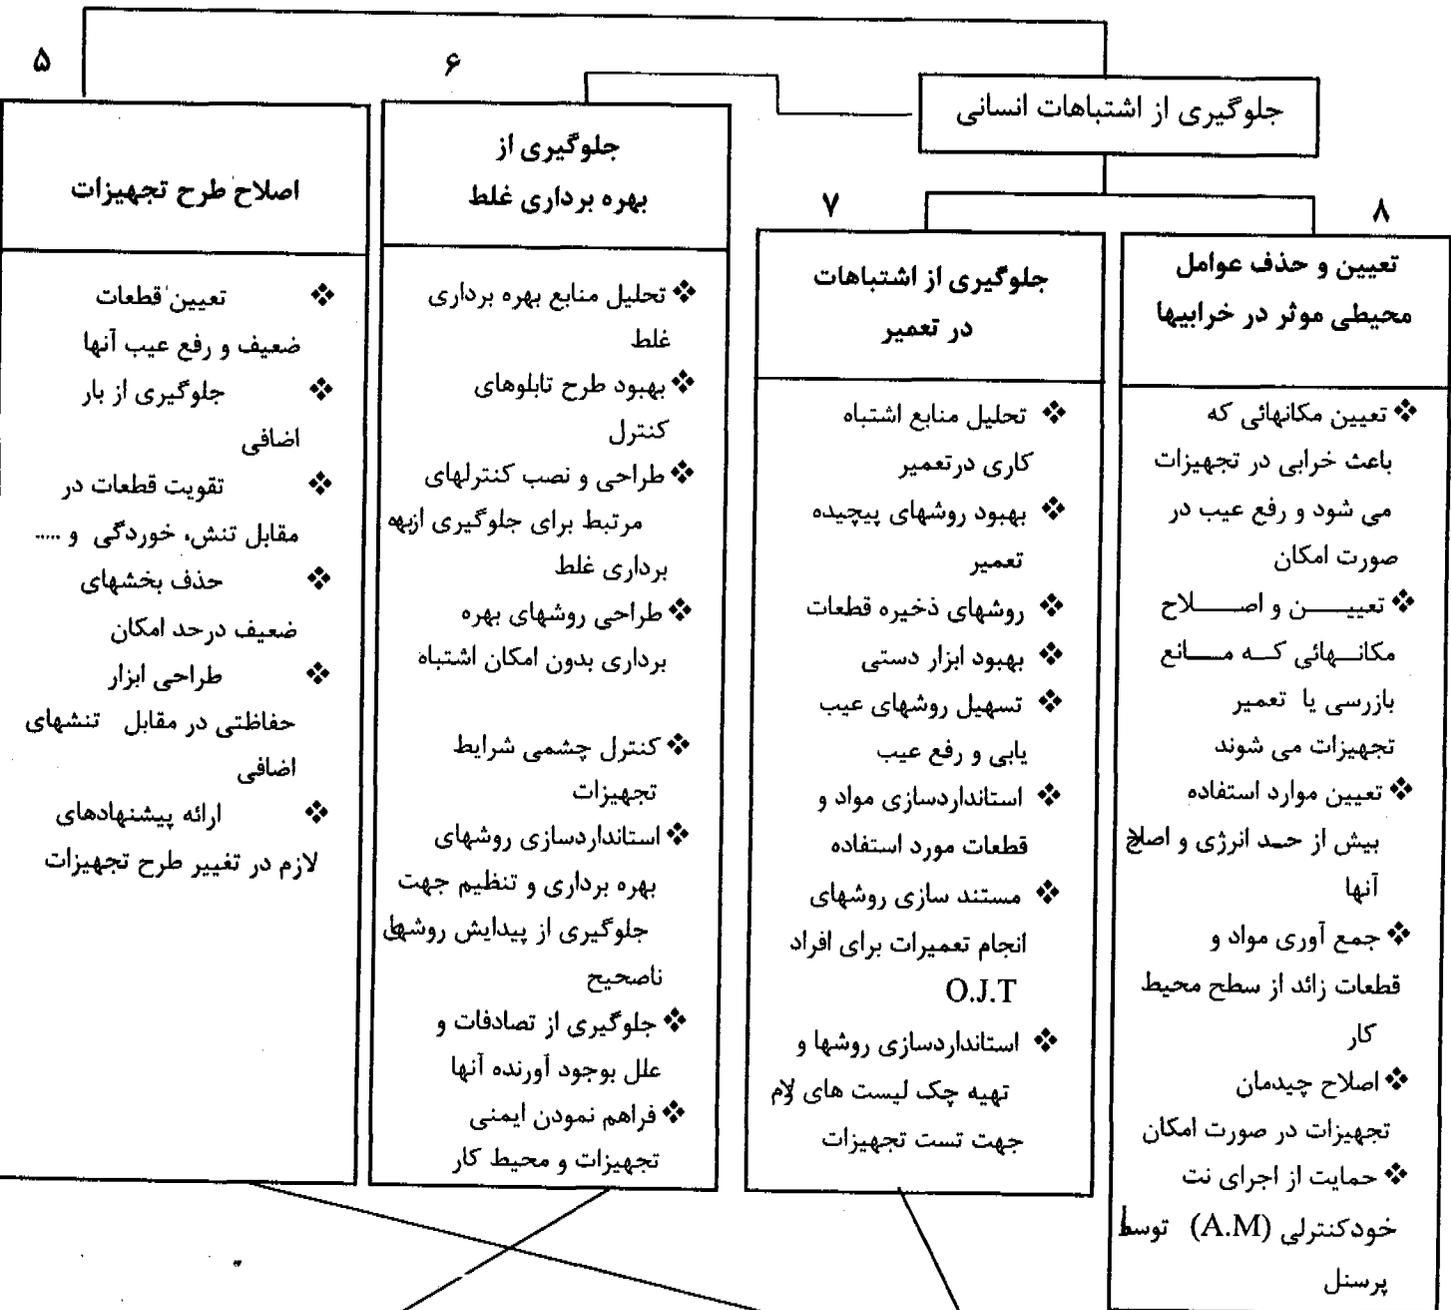 جلوگیری از اشتباهات انسانی
۸
تعیین و حذف عوامل
محیطی موثر در خرابیها
❖ تعیین مکانهائی که
باعث خرابی در تجهیزات
می شود و رفع عیب در
صورت امکان
❖ تعییــــن و اصـــــلاح
مکانــهائی کــه مــــانع
بازرسی یا تعمیر
تجهیزات می شوند
❖ تعیین موارد استفاده
بیش از حــد انرژی و اصلاح
آنها
❖ جمع آوری مواد و
قطعات زائد از سطح محیط
کار
❖ اصلاح چیدمان
تجهیزات در صورت امکان
❖ حمایت از اجرای نت
خودکنترلی (A.M) توسط
پرسنل
۷
جلوگیری از اشتباهات
در تعمیر
❖ تحلیل منابع اشتباه
کاری درتعمیر
❖ بهبود روشهای پیچیده
تعمیر
❖ روشهای ذخیره قطعات
❖ بهبود ابزار دستی
❖ تسهیل روشهای عیب
یابی و رفع عیب
❖ استانداردسازی مواد و
قطعات مورد استفاده
❖ مستند سازی روشهای
انجام تعمیرات برای افراد
O.J.T
❖ استانداردسازی روشها و
تهیه چک لیست های لازم
جهت تست تجهیزات
۶
جلوگیری از
بهره برداری غلط
❖ تحلیل منابع بهره برداری
غلط
❖ بهبود طرح تابلوهای
کنترل
❖ طراحی و نصب کنترلهای
مرتبط برای جلوگیری ازبهره
برداری غلط
❖ طراحی روشهای بهره
برداری بدون امکان اشتباه
❖ کنترل چشمی شرایط
تجهیزات
❖ استانداردسازی روشهای
بهره برداری و تنظیم جهت
جلوگیری از پیدایش روشهای
ناصحیح
❖ جلوگیری از تصادفات و
علل بوجود آورنده آنها
❖ فراهم نمودن ایمنی
تجهیزات و محیط کار
۵
اصلاح طرح تجهیزات
❖ تعیین قطعات
ضعیف و رفع عیب آنها
❖ جلوگیری از بار
اضافی
❖ تقویت قطعات در
مقابل تنش، خوردگی و .....
❖ حذف بخشهای
ضعیف درحد امکان
❖ طراحی ابزار
حفاظتی در مقابل تنشهای
اضافی
❖ ارائه پیشنهادهای
لازم در تغییر طرح تجهیزات